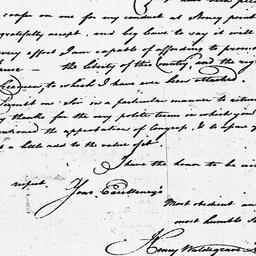 confer on me for my conduct at Stoney point
gratefully accept, and beg leave to say it will
every effort I am capable of affording to promote
the liberty of this country, and the
to which I have ever been attached
Permit me Sir in a particular manner to return
my thanks for the very polite terms in which you
the approbation of Congress, & to assure
a little add to the value of it
I have the honor to be with
respect.
Your Excellency's
Most obedient and
most humble
Henry